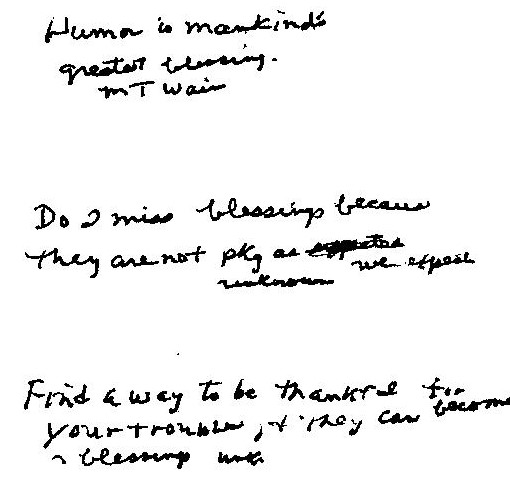 Humor is mankind's
greatest blessing.
M T Wain
Do I miss blessings because
they are not pkg as expected
we expect
unknown
Find a way to be thankful for
your troubles, & they can become
blessings unk